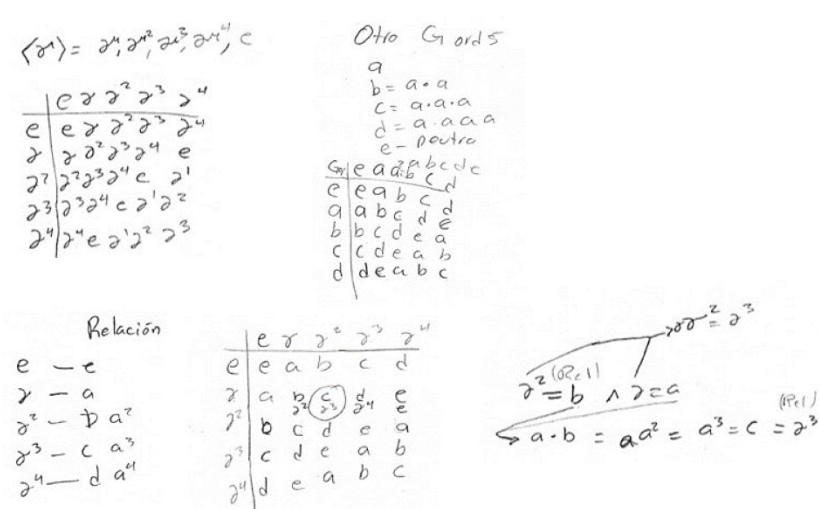 ⟨γ⟩ = γ, γ², γ³, γ⁴, e
e γ γ² γ³ γ⁴
e e γ γ² γ³ γ⁴
γ γ γ² γ³ γ⁴ e
γ² γ² γ³ γ⁴ e γ¹
γ³ γ³ γ⁴ e γ¹ γ²
γ⁴ γ⁴ e γ¹ γ² γ³
Otro G ord 5
a
b = a • a
c = a.a.a
d = a.a a a
e - neutro
e a b c d
e e a b c d
a a b c d e
b b c d e a
c c d e a b
d d e a b c
Relación
e — e
γ — a
γ² — b a²
γ³ — c a³
γ⁴ — d a⁴
e γ γ² γ³ γ⁴
e e a b c d
γ a b c d e
γ² γ³ γ⁴ e
γ² b c d e a
γ³ c d e a b
γ⁴ d e a b c
γγ² = γ³
γ² = b (Rel) ∧ γ = a
a • b = aa² = a³ = c = γ³ (Rel)